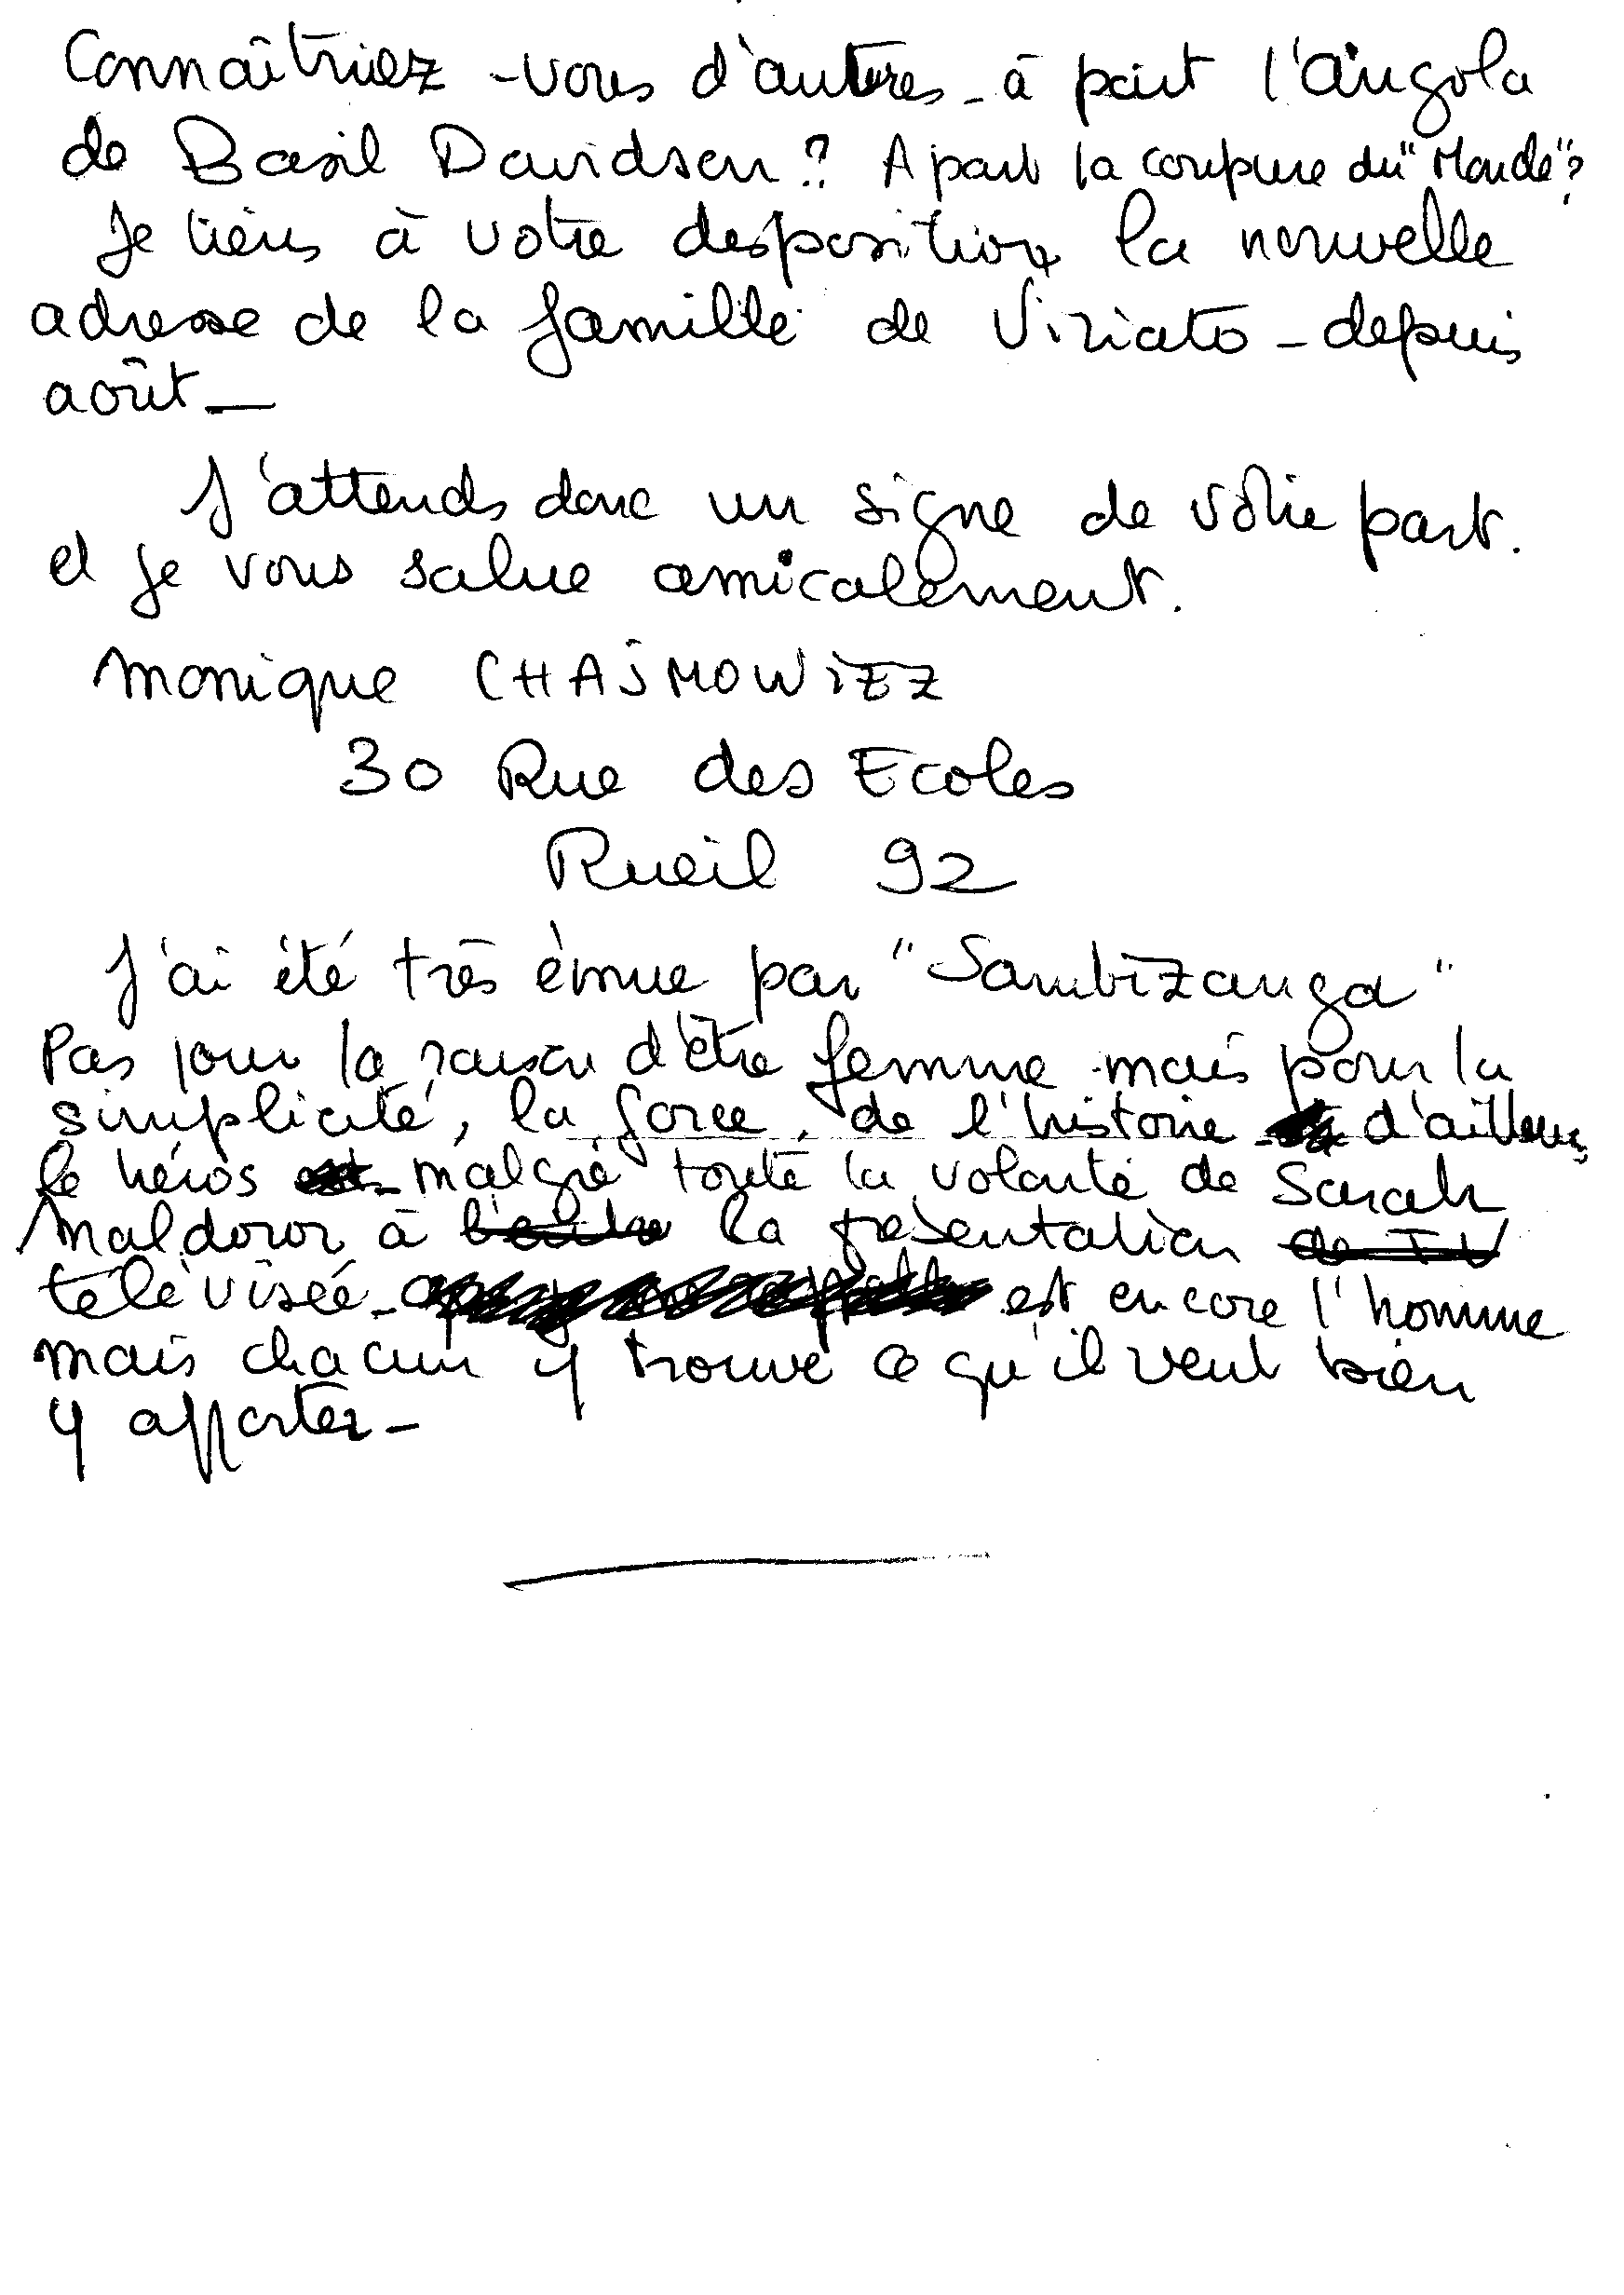 Connaîtriez-vous d'autres - à part l'Angola
de Basil Davidson ? A part la coupure du "Monde" ?
Je tiens à votre desposition la nouvelle
adresse de la famille de Viriato - depuis
août -
J'attends donc un signe de votre part.
et je vous salue amicalement.
Monique CHAJMOWIEZ
30 Rue des Ecoles
Rueil 92
J'ai été très émue par "Sambizanga"
Pas pour la raison d'être femme mais pour la
simplicité, la force, de l'histoire d'ailleurs
le héros malgré toute la volonté de Sarah
Maldoror à la présentation de TV
télévisée - est encore l'homme
mais chacun y trouve ce qu'il veut bien
y apporter -